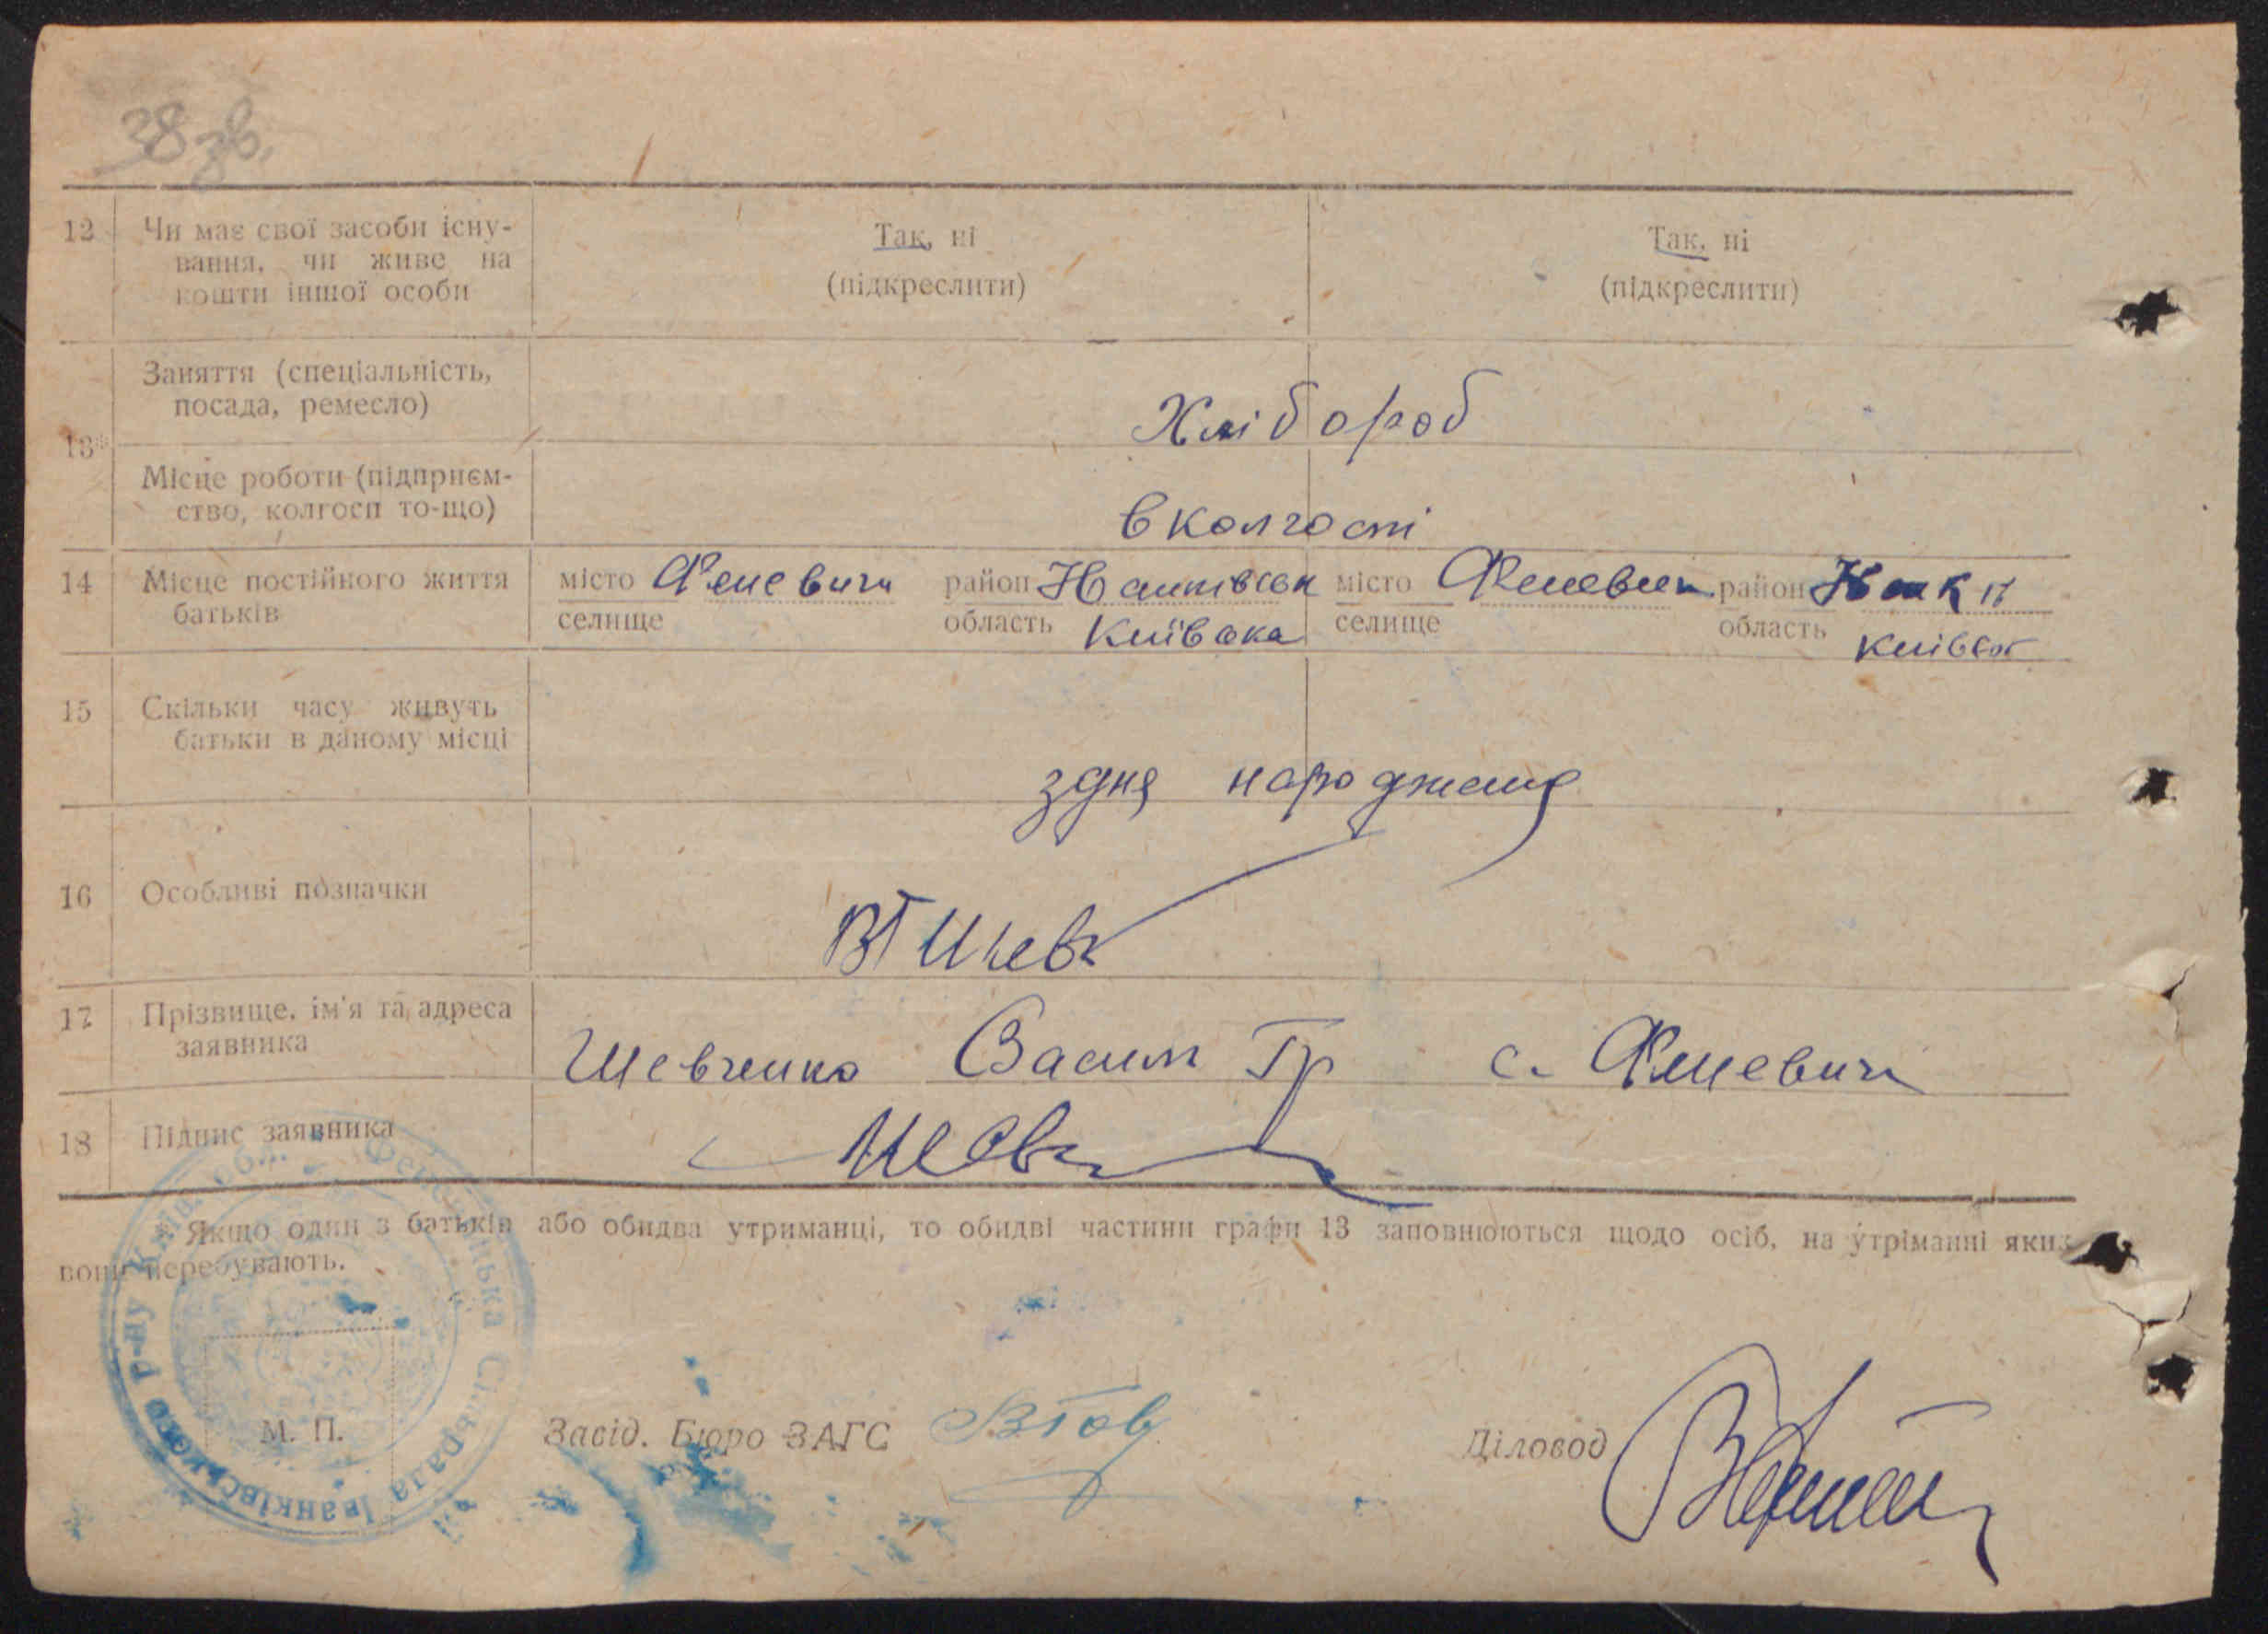 38 зв.
12 Чи має свої засоби існу-
вання, чи живе на
кошти іншої особи
Так, ні
(підкреслити)
Так, ні
(підкреслити)
13*
Заняття (спеціальність,
посада, ремесло)
Хлібороб
Місце роботи (підприєм-
ство, колгосп то-що)
в колгоспі
14 Місце постійного життя
батьків
місто Феневичи район
селище область Київська
місто Феневичи район
селище область
15 Скільки часу живуть
батьки в даному місці
з дня народження
16 Особливі позначки
17 Прізвище, ім'я та адреса
заявника
Шевченко Васил Гр с. Феневичи
18 Підпис заявника
Шевч
Якщо один з батьків або обидва утриманці, то обидві частини графи 13 заповнюються щодо осіб, на утріманні яких
вони перебувають.
Сільрада Іванківського р-ну Київ. обл.
М. П.
Завід. Бюро ЗАГС
Діловод